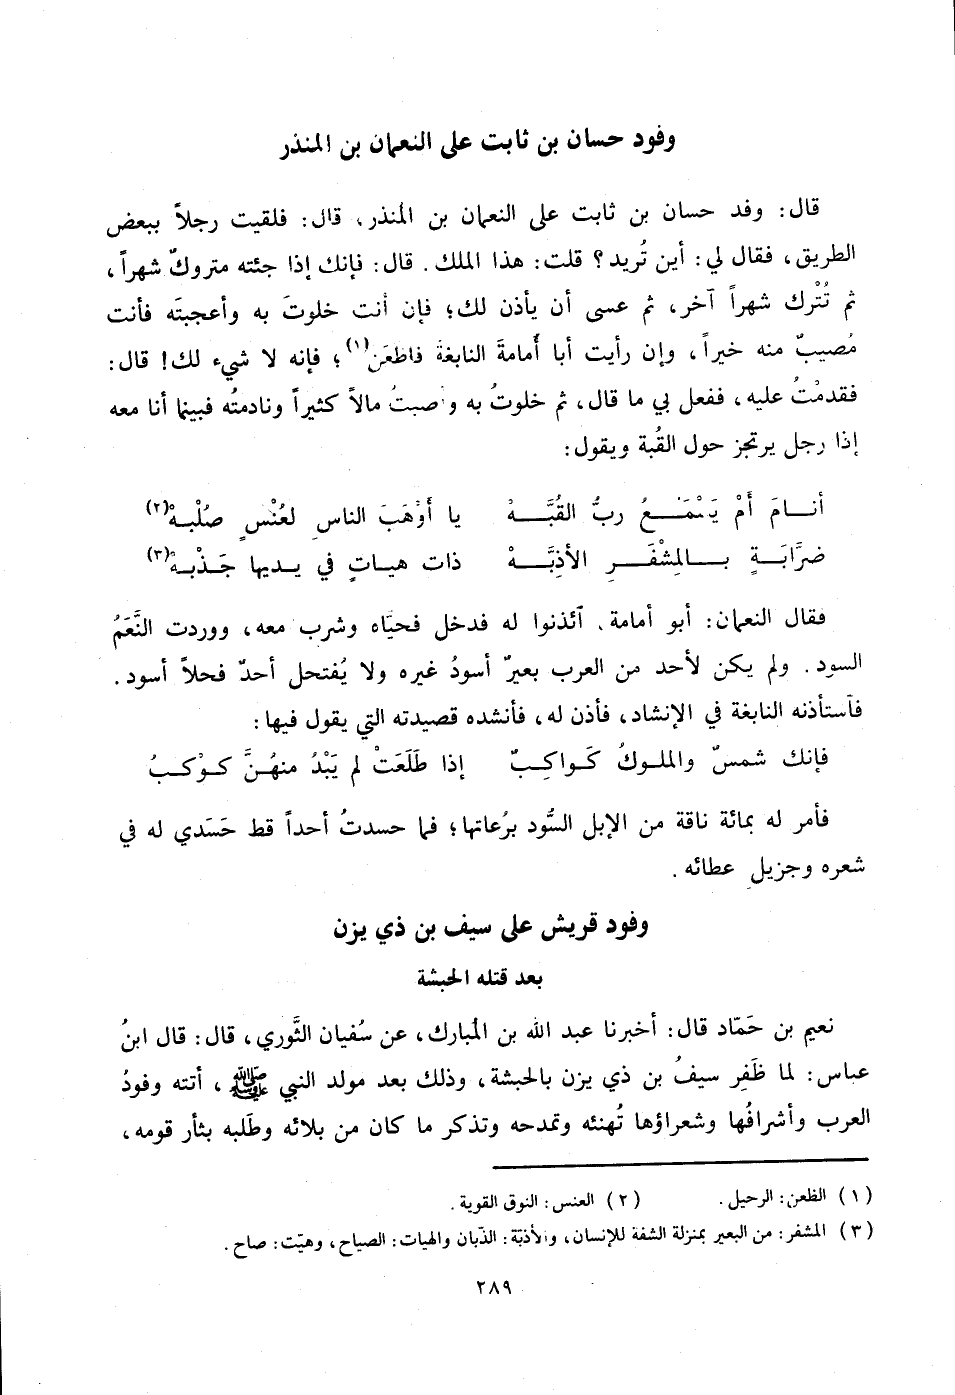 وفود حسان بن ثابت على النعمان بن المنذر
قال: وفد حسان بن ثابت على النعمان بن المنذر، قال: فلقيت رجلاً ببعض
الطريق، فقال لي: أين تُريد؟ قلت: هذا الملك. قال: فإنك إذا جئته متروكٌ شهراً،
ثم تُتْرك شهراً آخر، ثم عسى أن يأذن لك؛ فإن أنت خلوتَ به وأعجبتَه فأنت
مُصيبٌ منه خيراً، وإن رأيت أبا أُمامةَ النابغة فاظعَن(١)؛ فإنه لا شيء لك! قال:
فقدمْتُ عليه، ففعل بي ما قال، ثم خلوتُ به وأصبتُ مالاً كثيراً ونادمتُه فبينما أنا معه
إذا رجل يرتجز حول القُبة ويقول:
أنـام أمْ يَسْمَـعُ ربُّ القُبَّـهْ يا أَوْهَبَ الناسِ لعُنْسٍ صُلْبـهْ(٢)
ضرَّابَـةٍ بـالمِشْفَـرِ الأَذِبَّـهْ ذات هيـاتٍ في يـديها جَـذْبـهْ(٣)
فقال النعمان: أبو أمامة. آئذنوا له فدخل فحيّاه وشرب معه، ووردت النَّعَمُ
السود. ولم يكن لأحد من العرب بعيرٌ أسودُ غيره ولا يُفتحل أحدٌ فحلاً أسود.
فآستأذنه النابغة في الإنشاد، فأذن له، فأنشده قصيدته التي يقول فيها:
فإنك شمسٌ والملوكُ كَواكِبٌ إذا طَلَعَتْ لم يَبْدُ منهُـنَّ كـوْكـبُ
فأمر له بمائة ناقة من الإبل السُّود برُعاتها؛ فما حسدتُ أحداً قط حَسَدي له في
شعره وجزيلِ عطائه.
وفود قريش على سيف بن ذي يزن
بعد قتله الحبشة
نعيم بن حَمّاد قال: أخبرنا عبد الله بن المبارك، عن سُفيان الثَّوري، قال: قال ابنُ
عباس: لما ظَفِر سيفُ بن ذي يزن بالحبشة، وذلك بعد مولد النبي ﷺ، أتته وفودُ
العرب وأشرافُها وشعراؤها تُهنئه وتمدحه وتذكر ما كان من بلائه وطلَبه بثأر قومه،
(١) الظعن: الرحيل. (٢) العنس: النوق القوية.
(٣) المشفر: من البعير بمنزلة الشفة للإنسان، والأذبّة: الذّبان والهيات: الصياح، وهيّت: صاح.
٢٨٩